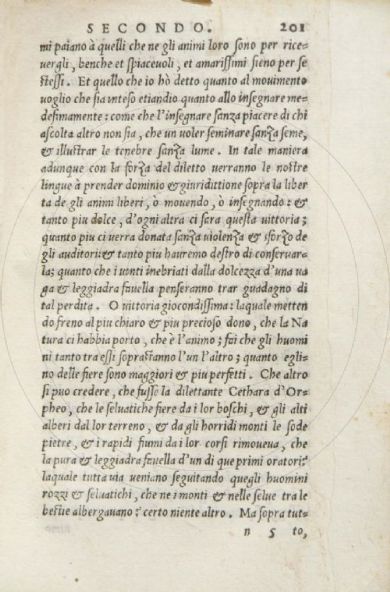 SECONDO. 201
mi paiano à quelli che ne gli animi loro sono per rice-
vergli, benche et spiaceuoli, et amarissimi sieno per se
stessi. Et quello che io hò detto quanto al mouimento
voglio che sia inteso etiandio quanto allo insegnare me-
desimamente: come che l'insegnare sanza piacere di chi
ascolta altro non sia, che un voler seminare sanza seme,
& illustrar le tenebre sanza lume. In tale maniera
adunque con la forza del diletto verranno le nostre
lingue à prender dominio & giuridittione sopra la liber
ta de gli animi liberi, ò mouendo, ò insegnando: &
tanto piu dolce, d'ogni altra ci sara questa vittoria;
quanto piu ci verra donata sanza violenza & sforzo de
gli auditori: & tanto piu hauremo destro di conseruar-
la; quanto che i vinti inebriati dalla dolcezza d'una va
ga & leggiadra fauella penseranno trar guadagno di
tal perdita. O vittoria giocondissima: laquale metten
do freno al piu chiaro & piu precioso dono, che la Na
tura ci habbia porto, che è l'animo; fai che gli huomi
ni tanto tra essi soprastanno l'un l'altro; quanto egli-
no delle fiere sono maggiori & piu perfetti. Che altro
si puo credere, che fusse la dilettante Cethara d'Or-
pheo, che le seluatiche fiere da i lor boschi, & gli alti
alberi dal lor terreno, & da gli horridi monti le sode
pietre, & i rapidi fiumi da i lor corsi rimoueua, che
la pura & leggiadra fauella d'un di que primi oratori?
laquale tutta via ueniano seguitando quegli huomini
rozzi & seluatichi, che ne i monti & nelle selue tra le
bestie albergauano? certo niente altro. Ma sopra tut-
n 5 to,